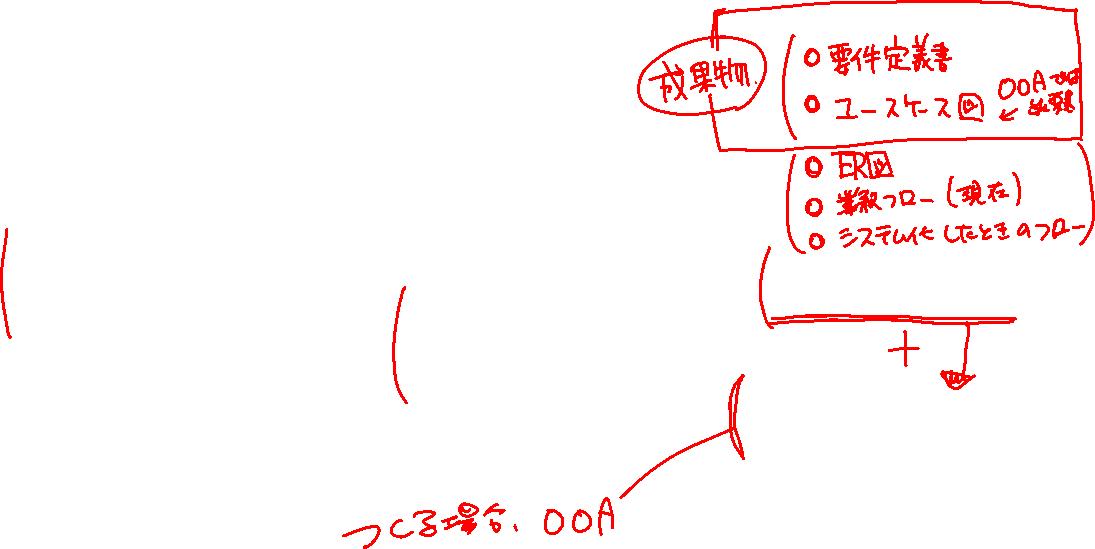 成果物
○ 要件定義書
○ ユースケース図 ↙ OOAでは必須
○ ER図
○ 業務フロー(現在)
○ システム化したときのフロー
+
つくる場合、OOA